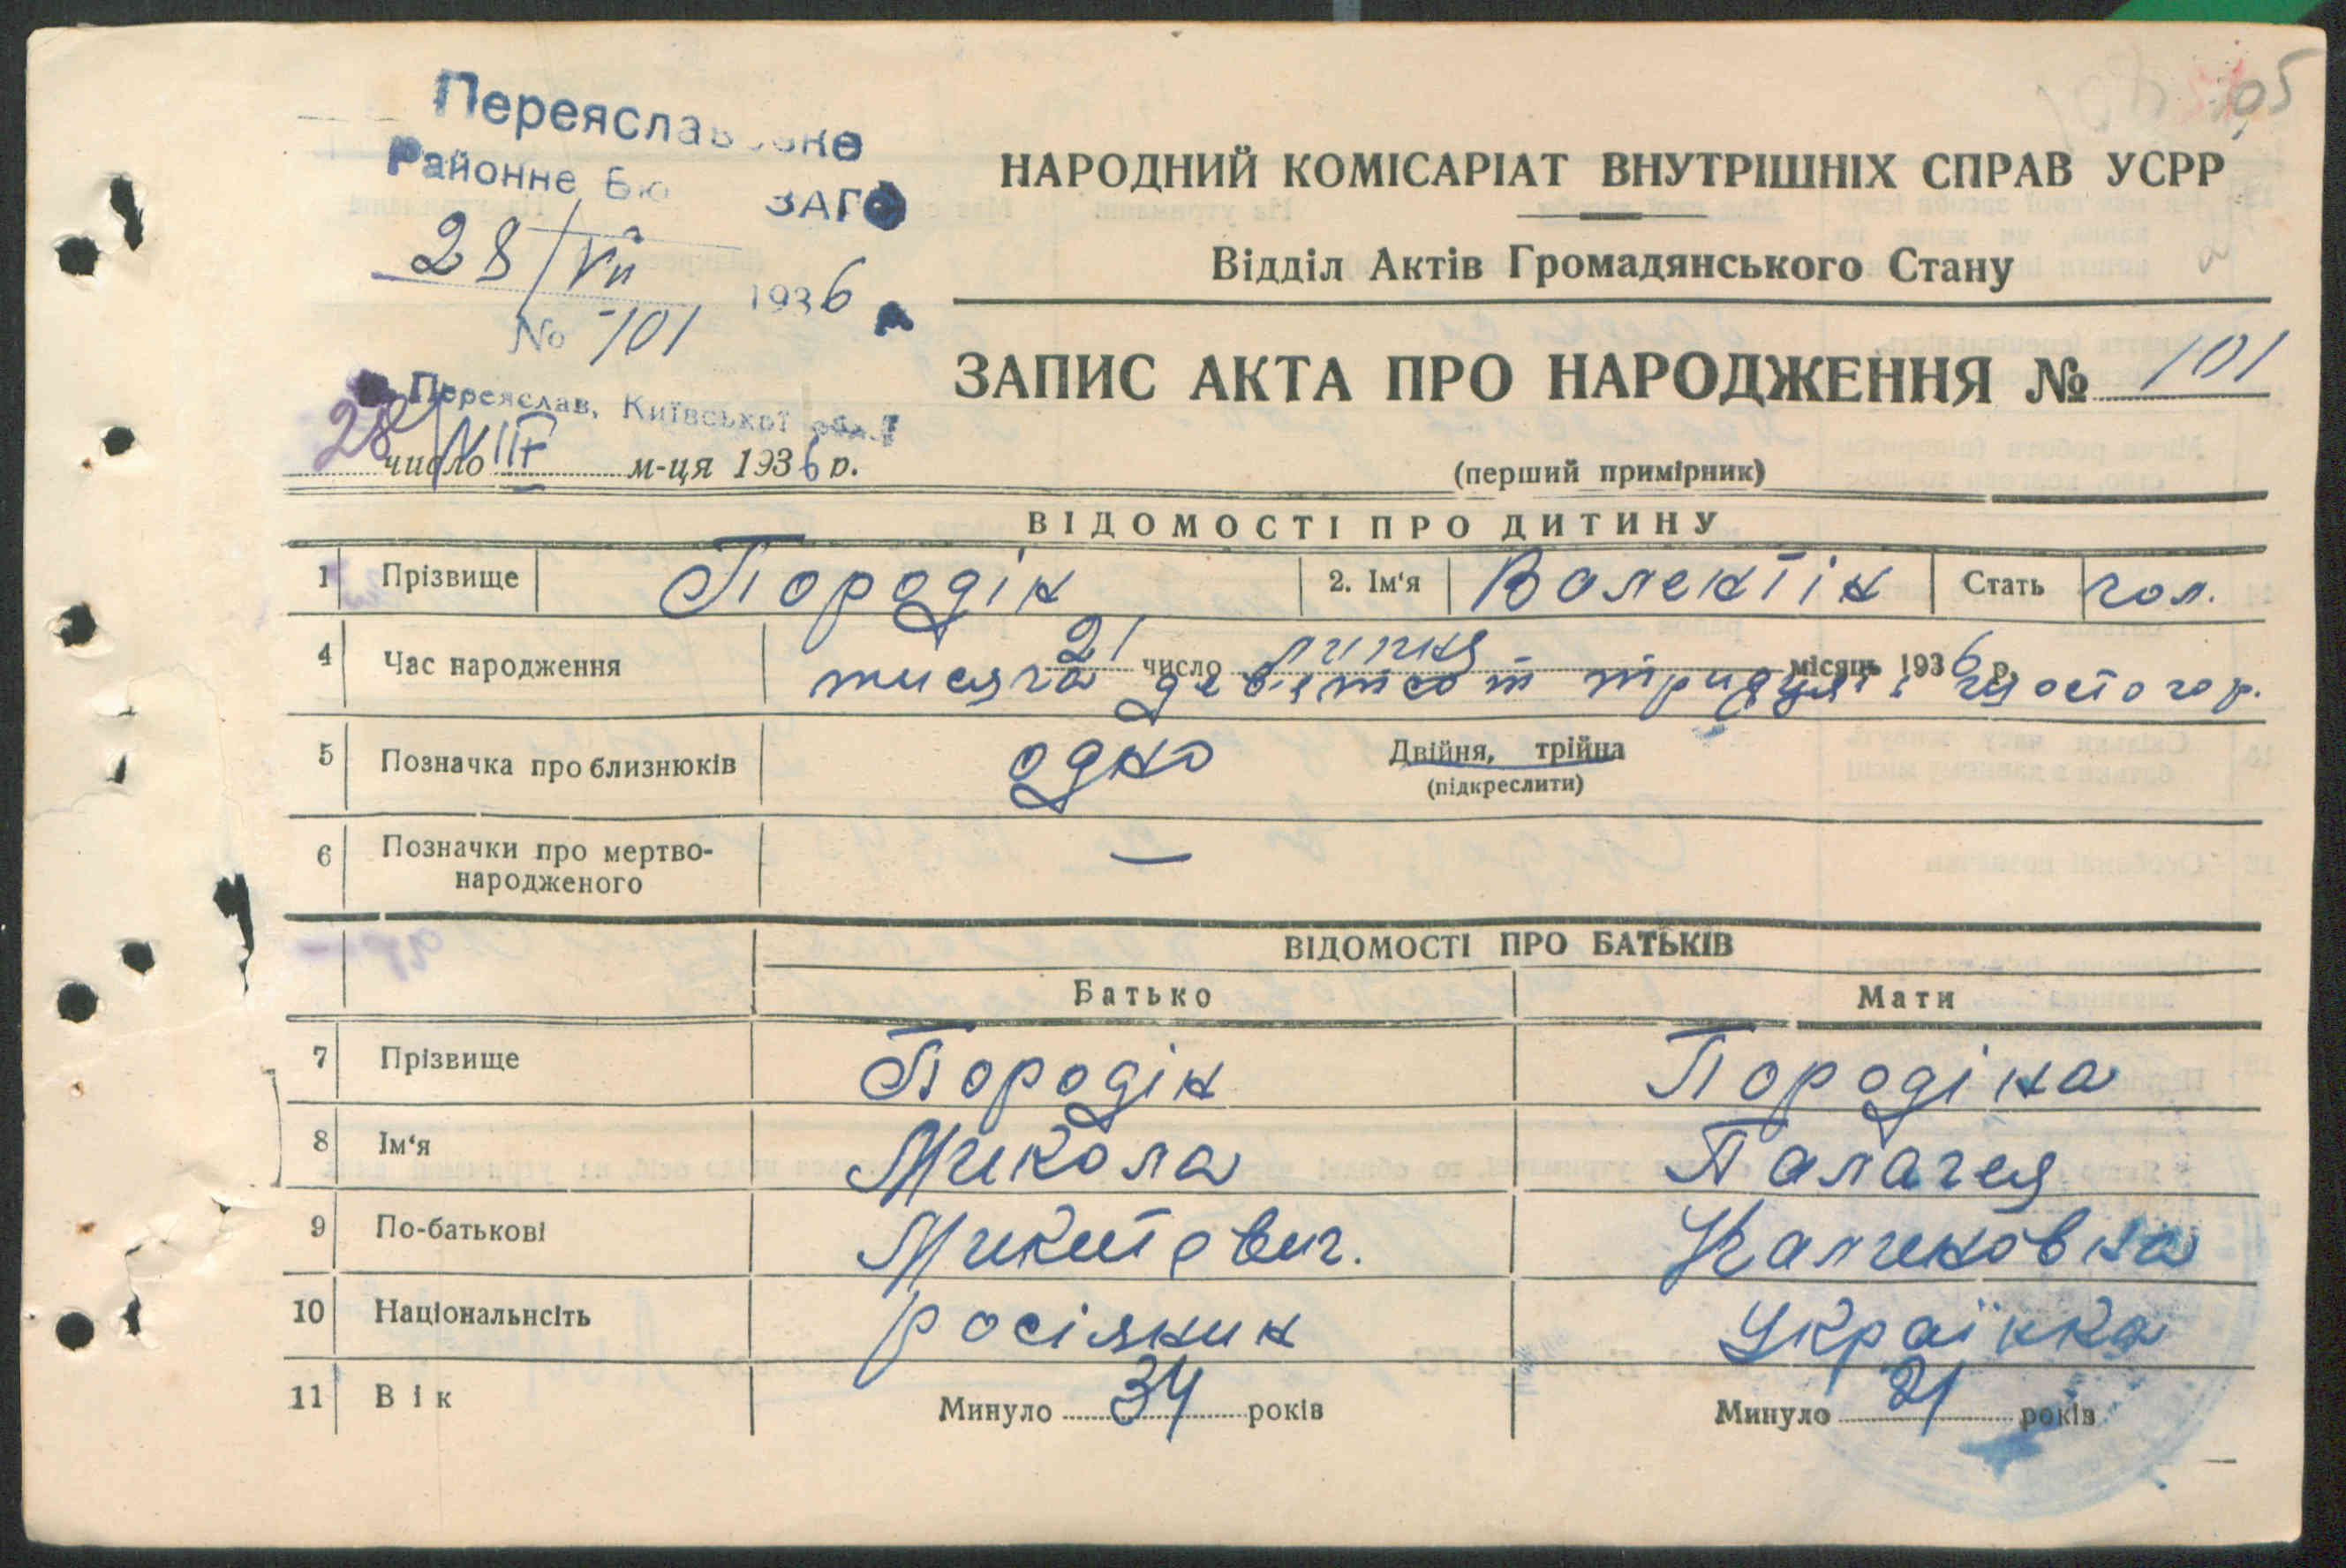 105
Переяславське
Районне Бю ЗАГС
28/VII 1936
No 101
Переяслав, Київської обл.
28 число VII м-ця 1936 р.
НАРОДНИЙ КОМІСАРІАТ ВНУТРІШНІХ СПРАВ УСРР
Відділ Актів Громадянського Стану
ЗАПИС АКТА ПРО НАРОДЖЕННЯ № 101
(перший примірник)
ВІДОМОСТІ ПРО ДИТИНУ
1 Прізвище Породін 2. Ім'я Валентін Стать чол.
4 Час народження 21 число липня місяць 1936 р.
тисяча дев'ятсот тридцять шостого р.
5 Позначка про близнюків одно Двійня, трійна
(підкреслити)
6 Позначки про мертво-
народженого —
ВІДОМОСТІ ПРО БАТЬКІВ
Батько Мати
7 Прізвище Породін Породіна
8 Ім'я Микола Палагея
9 По-батькові Микитович. Калиновна
10 Національнсіть росіянин Українка
11 Вік Минуло 34 років Минуло 21 років